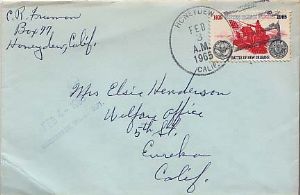 C.R. Freeman
Box 97
Honeydew, Calif.
HONEYDEW
FEB
3
A.M.
1965
CALIF.
1815
1965
BATTLE OF NEW ORLEANS
Mrs Elsie Henderson
Welfare Office
5th St.
Eureka
Calif.